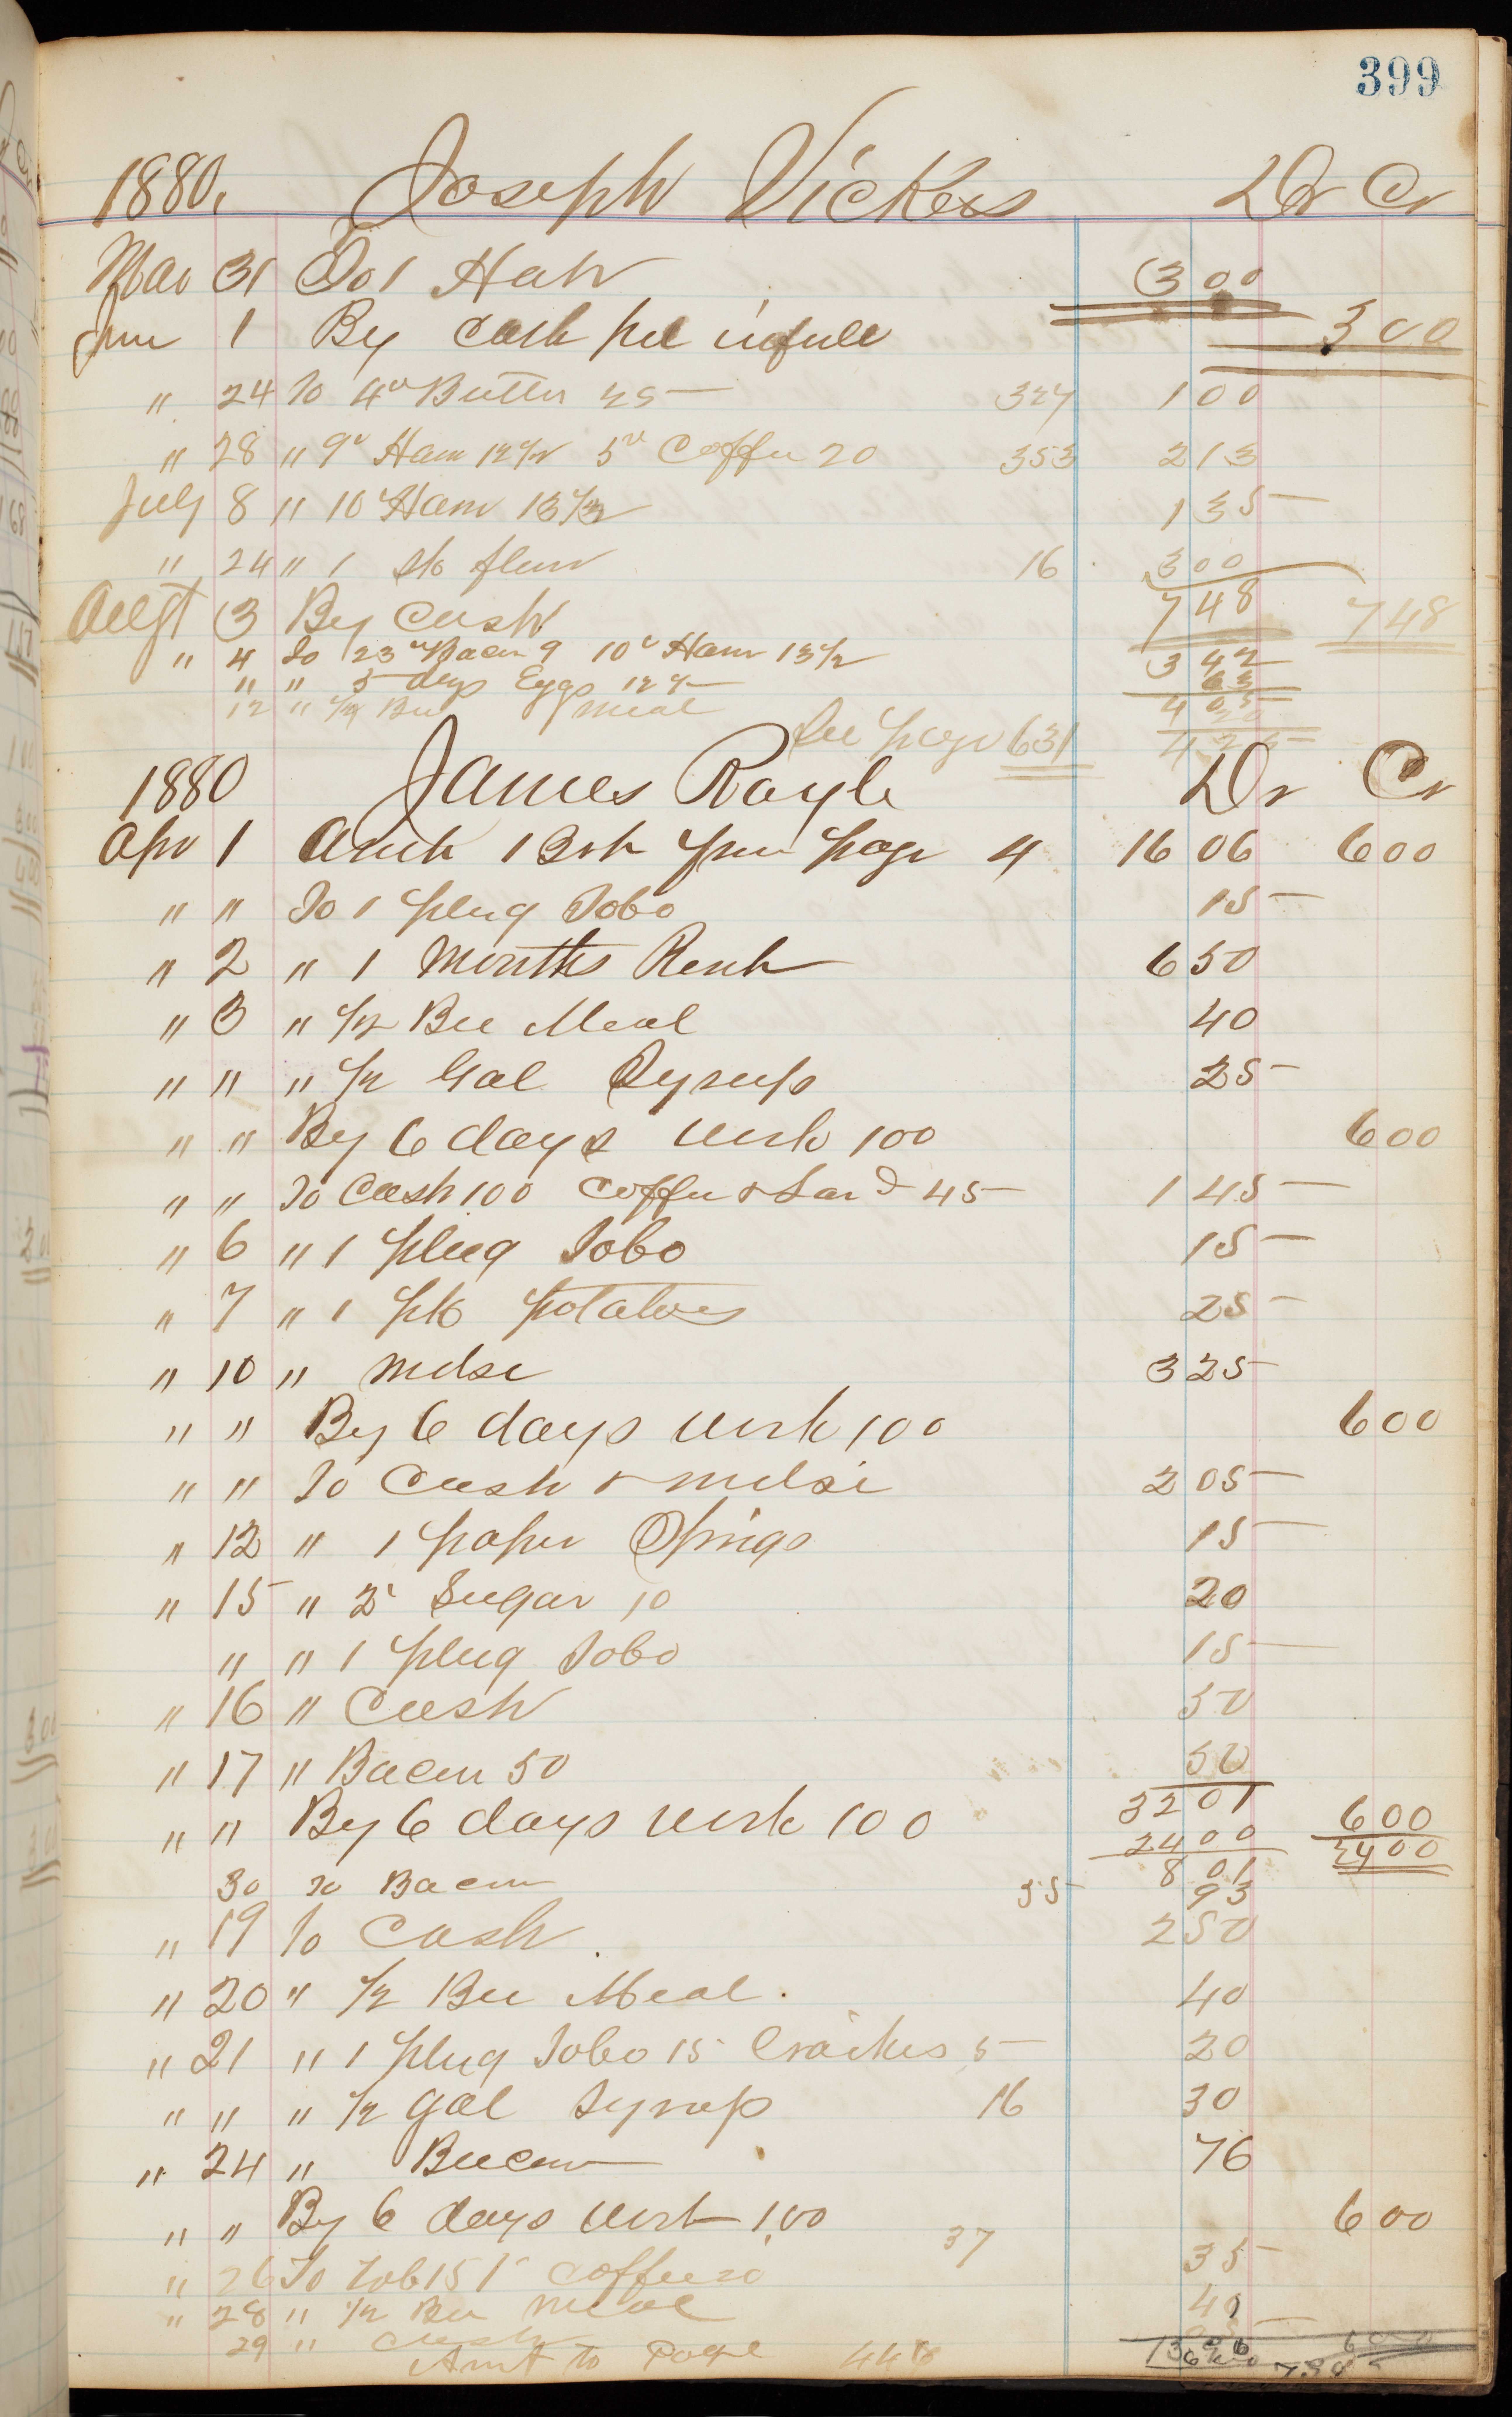 399
1880. Joseph Vickers Dr Cr
Mar 31 To 1 Hat 3 00
Jun 1 By Cash pd in full 3 00
" 24 To 4# Butter 25 327 1 00
" 28 " 9# Ham 12 1/2 5# Coffee 20 353 2 13
July 8 " 10# Ham 13 1/2 1 35
" 24 " 1 sk flour 16 3 00
Augt 3 By Cash 7 48 7 48
" 4 To 23# Bacon 9 10# Ham 13 1/2 3 42
" " 5 doz Eggs 12 1/2 63
12 " 1/2 Bu Meal 4 05
See page 631
1880 James Rayle Dr Cr
Apr 1 Amt Brt from page 4 16 06 6 00
" " To 1 plug Tobo 15
" 2 " 1 Months Rent 6 50
" 3 " 1/2 Bu Meal 40
" " " 1/2 Gal Syrup 25
" " By 6 days work 100 6 00
" " To Cash 100 Coffee & Lard 45 1 45
" 6 " 1 plug Tobo 15
" 7 " 1 pk potatoes 25
" 10 " Mdse 3 25
" " By 6 days work 100 6 00
" " To Cash & mdse 2 05
" 12 " 1 paper 15
" 15 " 2# Sugar 10 20
" " 1 plug Tobo 15
" 16 " Cash 50
" 17 " Bacon 50 50
32 01
" " By 6 days work 100 24 00 6 00
8 01 24 00
30 To Bacon 55 93
" 19 To Cash 2 50
" 20 " 1/2 Bu Meal 40
" 21 " 1 plug Tobo 15 Crackers 5 20
" " " 1/2 gal Syrup 16 30
" 24 " Bacon 76
" " By 6 days work 1.00 6 00
" 26 To Tob 15 1# Coffee 20 37 35
" 28 " 1/2 Bu Meal 40
29 " Cash
Amt to Page